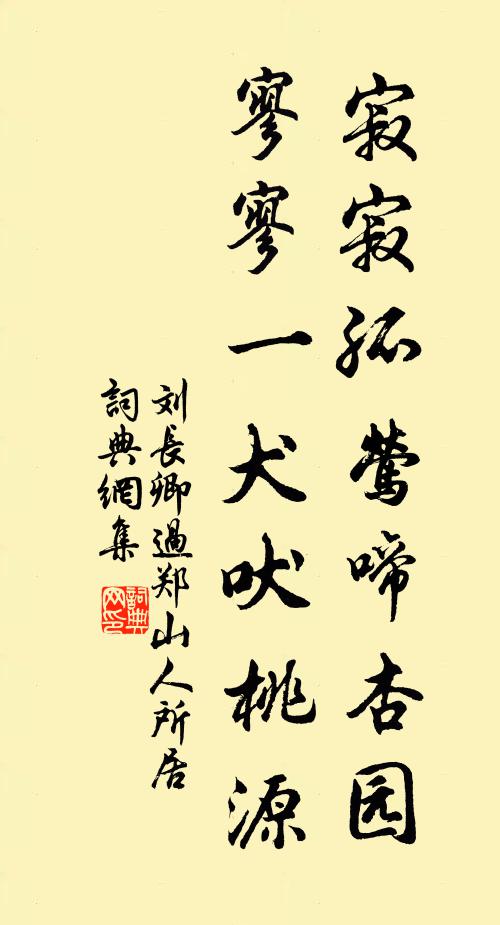 寂寂孤莺啼杏园
寥寥一犬吠桃源
刘長卿過郑山人所居
詞典網集
詞典网印